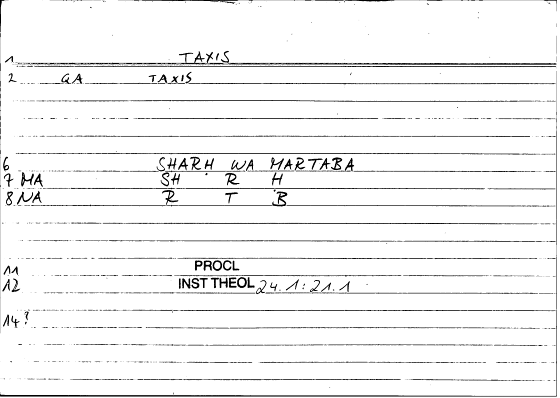 1 TAXIS
2 GA TAXIS
6 SHARḤ WA MARTABA
7 MA SH R Ḥ
8 NA R T B
11 PROCL
12 INST THEOL 24.1:21.1
14?